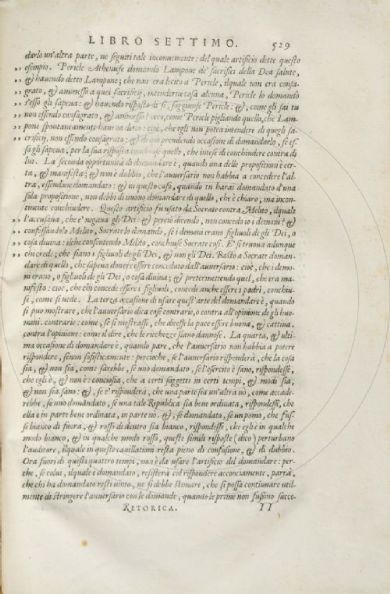 LIBRO SETTIMO. 529
darlo un'altra parte, ne seguiti tale inconueniente: del quale artificio dette questo
essempio. Pericle Atheniese domandò Lampone de' sacrifici della Dea salute,
& hauendo detto Lampone; che non era lecito a Pericle, il quale non era consa-
grato, & ammesso a quei sacrifici, intenderne cosa alcuna, Pericle lo domandò
s'esso gli sapeua: & hauendo risposto di sì, soggiunse Pericle: &, come gli sai tu
non essendo consagrato,
crificij, non essendo consagrato:
so gli sapeua, per la sua
lui. La seconda opportunità di domandare è, quando una delle propositioni è cer-
ta, & manifesta: & non è dubbio, che l'auuersario non habbia a concedere l'al-
tra, essendone domandato: & in questo caso, quando tu harai domandato d'una
sola propositione, non debbi di nuouo domandare di quello, che è chiaro, ma incon-
tinente conchiudere. Questo artificio fu usato da Socrate contra Melito, il quale
l'accusaua, che e' negaua gli Dei: & però dicendo, non concedo io i demoni? &
confessandolo Melito, Socrate lo domandò, se i demoni erano figliuoli degli Dei, o
cosa diuina: il che consentendo Melito, conchiuse Socrate così. E' si troua adunque
chi crede, che siano i figliuoli degli Dei, & non gli Dei. Restò a Socrate doman-
dare di quello, che sapeua douere essere conceduto dell'auuersario: cioè, che i demo-
ni erano, o figliuoli de gli Dei, o cosa diuina; & pretermettere quel, che era ma-
nifesto: cioè, che chi concede essere i figliuoli, concede anche essere i padri, conchiu-
si, come si uede. La terza occasione di usare quest'arte del domandare è, quando
si può mostrare, che l'auuersario dica cose contrarie, o contra all'opinione de gli huo-
mini. contrarie: come, se si mostrasse, che dicesse la pace essere buona, & cattiua.
contra l'opinione: come il dire, che le ricchezze siano dannose. La quarta, & ulti-
ma occasione di domandare è, quando pare, che l'auuersario non habbia a potere
rispondere, se non sofisticamente: percioche, se l'auuersario risponderà, che la cosa
sia, & non sia, come sarebbe, se uno domandato, se l'esercito è sano, rispondesse,
che egli è, & non è: conciosia, che a certi soggetti in certi tempi, & modi sia,
& non sia sano: &, se e' risponderà, che una parte sia un'altra nò, come accade-
rebbe, se uno domandato, se una tale Republica sia bene ordinata, rispondesse, che
ella è in parte bene ordinata, in parte nò. &, se domandato, se un pomo, che fus-
se bianco di fuora, & rosso di dentro sia bianco, rispondesse, che egli è in qualche
modo bianco, & in qualche modo rosso, queste simili risposte (dico) perturbano
l'auditore, il quale in queste cauillationi resta pieno di confusione, & di dubbio.
Ora fuori di questi quattro tempi, non è da usare l'artificio del domandare: per-
che, se colui, il quale è domandato, resisterà col rispondere acconciamente, parrà,
che chi ha domandato resti uinto, ne si debbe stimare, che si possa continuare util-
mente di stringere l'auuersario con le domande, quando le prime non fussino succe-
RETORICA. II